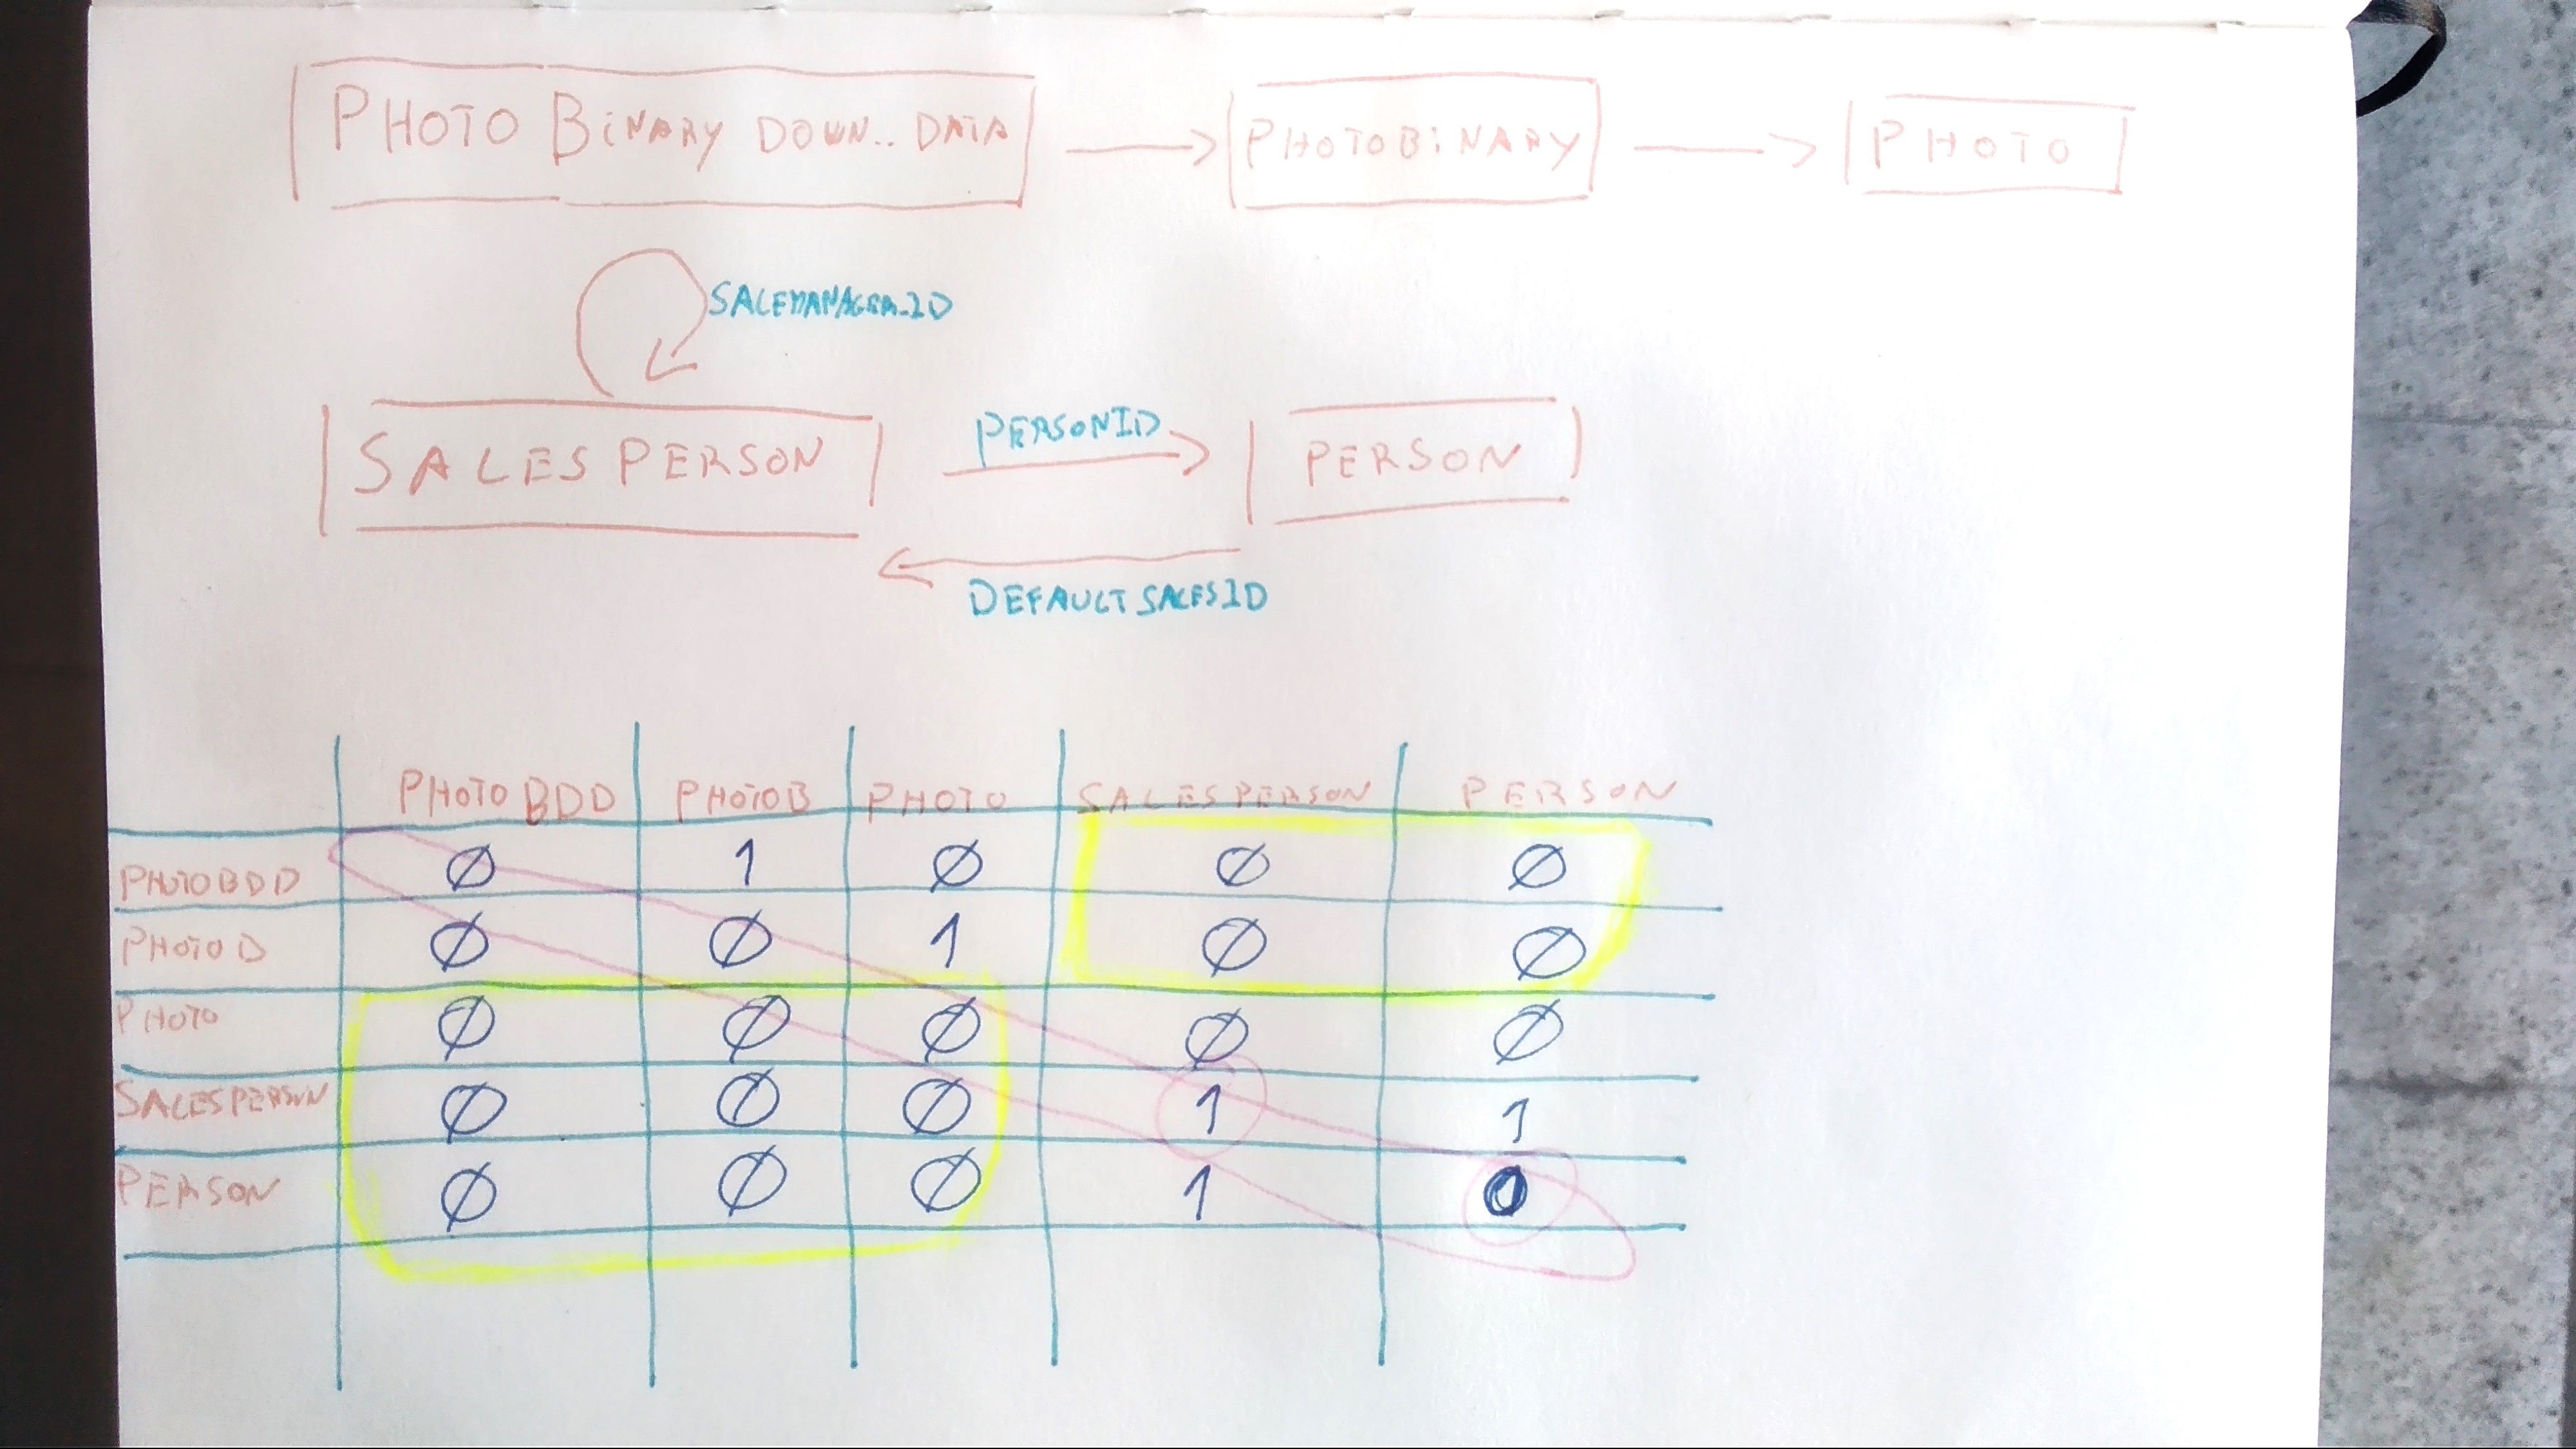 PHOTO BINARY DOWN.. DATA PHOTOBINARY PHOTO
SALEMANAGER_ID
SALESPERSON PERSONID PERSON
DEFAULTSALESID
PHOTO BDD PHOTOB PHOTO SALESPERSON PERSON
PHOTOBDD Ø 1 Ø Ø Ø
PHOTO D Ø Ø 1 Ø Ø
PHOTO Ø Ø Ø Ø Ø
SALESPERSON Ø Ø Ø 1 1
PERSON Ø Ø Ø 1 0